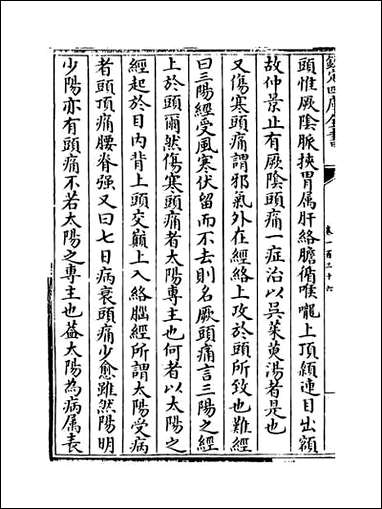 欽定四庫全書
卷一百三十六
頭惟厥陰脈挾胃属肝絡膽循喉嚨上頂顙連目出額
故仲景止有厥陰頭痛一症治以吳茱萸湯者是也
又傷寒頭痛謂邪氣外在經絡上攻於頭所致也難經
曰三陽經受風寒伏留而不去則名厥頭痛言三陽之經
上於頭爾然傷寒頭痛者太陽專主也何者以太陽之
經起於目内眥上頭交巔上入絡腦經所謂太陽受病
者頭頂痛腰脊强又曰七日病衰頭痛少愈雖然陽明
少陽亦有頭痛不若太陽之專主也葢太陽為病属表